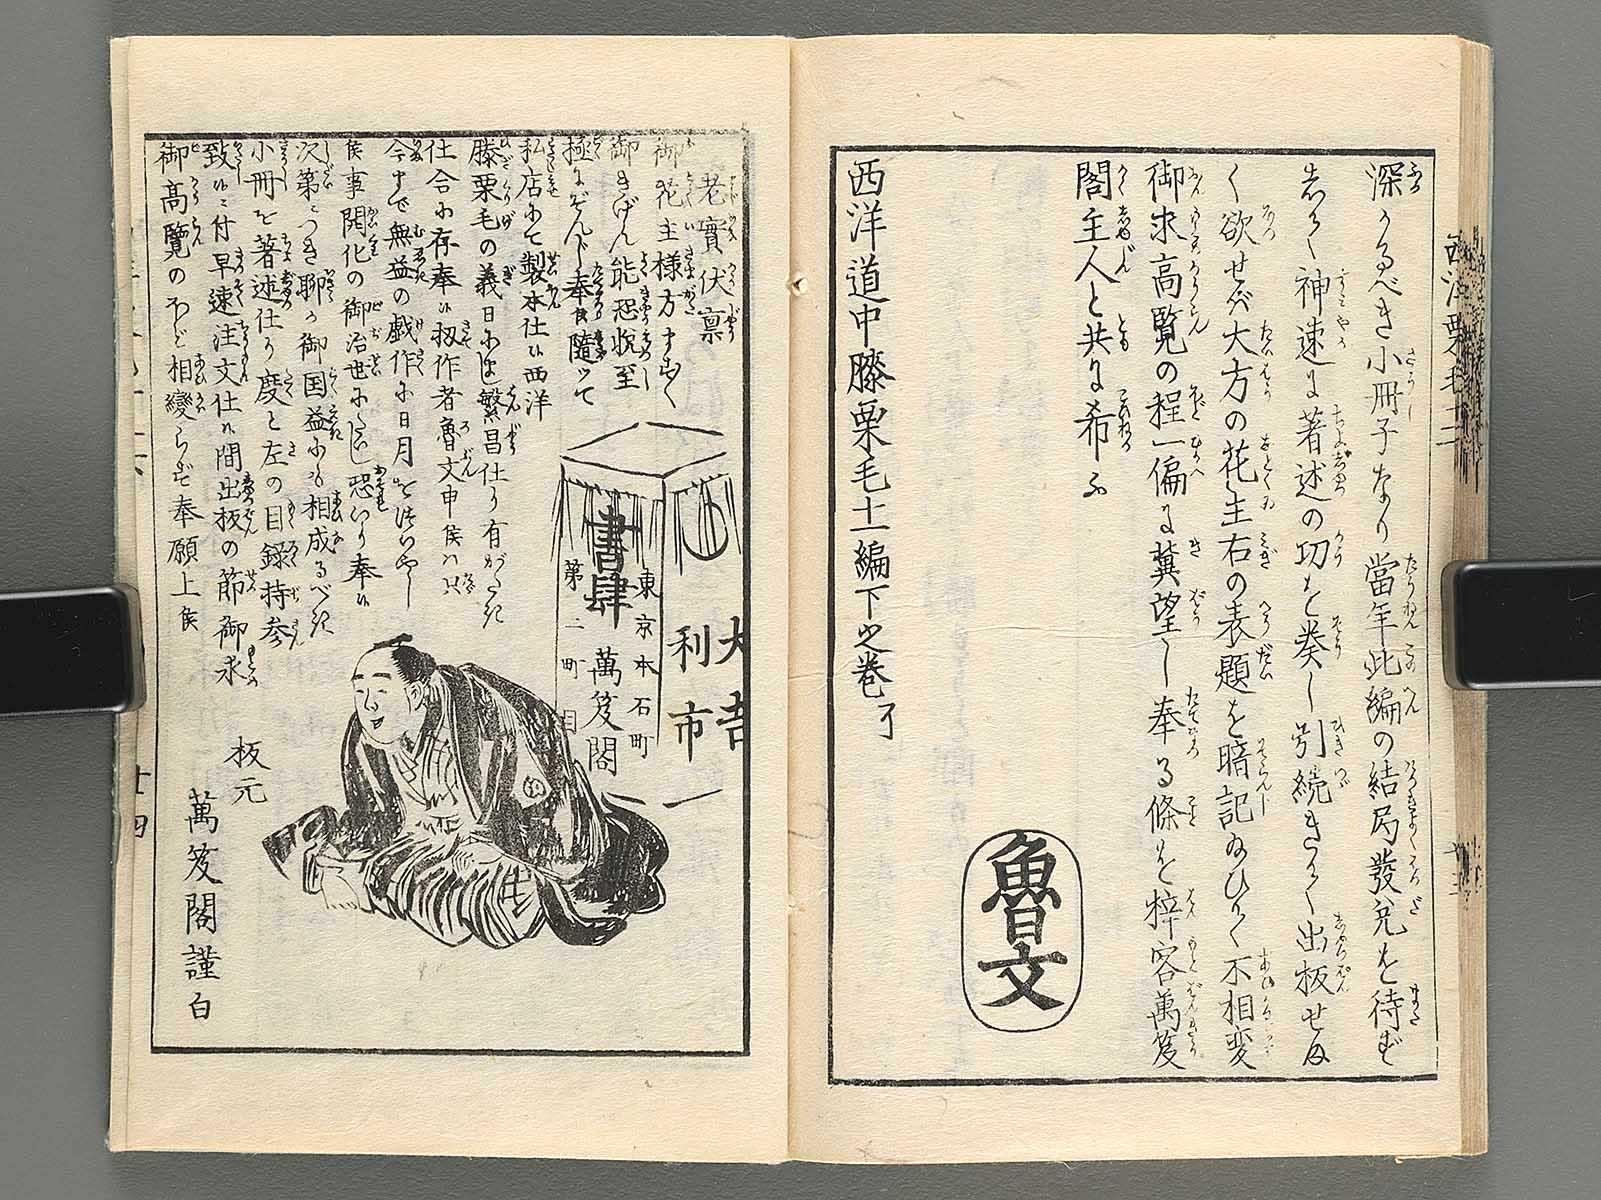 深かるべき小冊子なり當年此編の結局發兌を待ず
神速に著述の功を奏し引続き出板せま
く欲せバ大方の花主右の表題を暗記ゐひて不相変
御求高覧の程一偏に冀望し奉る條を梓客萬笈
閣主人と共に希ふ
魯文
西洋道中膝栗毛十一編下之巻了
老實伏禀
御花主様方ますます
御きげん能恐悦至
極にぞんじ奉候隨つて
私店にて製本仕候西洋
膝栗毛の義日にまし繁昌仕り有がたき
仕合に存奉候扨作者魯文申候ハ只
今まで無益の戯作に日月を
候事開化の御治世にたいし恐いり奉候
次第につき聊か御国益にも相成るべき
小冊を著述仕り度と左の目録持参
致候に付早速注文仕候間出板の節御求
御高覧のほど相變らず奉願上候
板元
萬笈閣謹白
大吉
利市
東京本石町
第二町目
書肆
萬笈閣
西洋栗毛十一
廿四